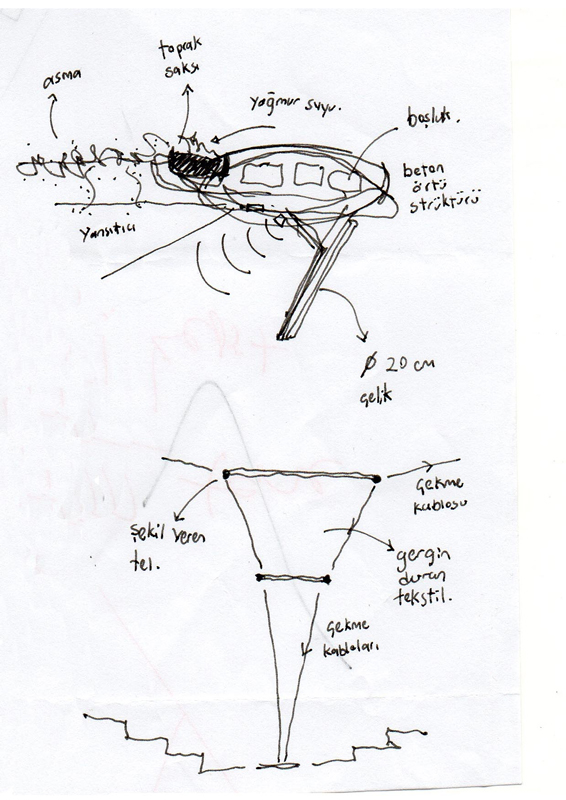 toprak
saksı
asma
yağmur suyu.
boşluk.
beton
örtü
strüktürü
yansıtıcı
Ø 20 cm
çelik
çekme
kablosu
şekil veren
tel.
gergin
duran
tekstil.
çekme
kabloları